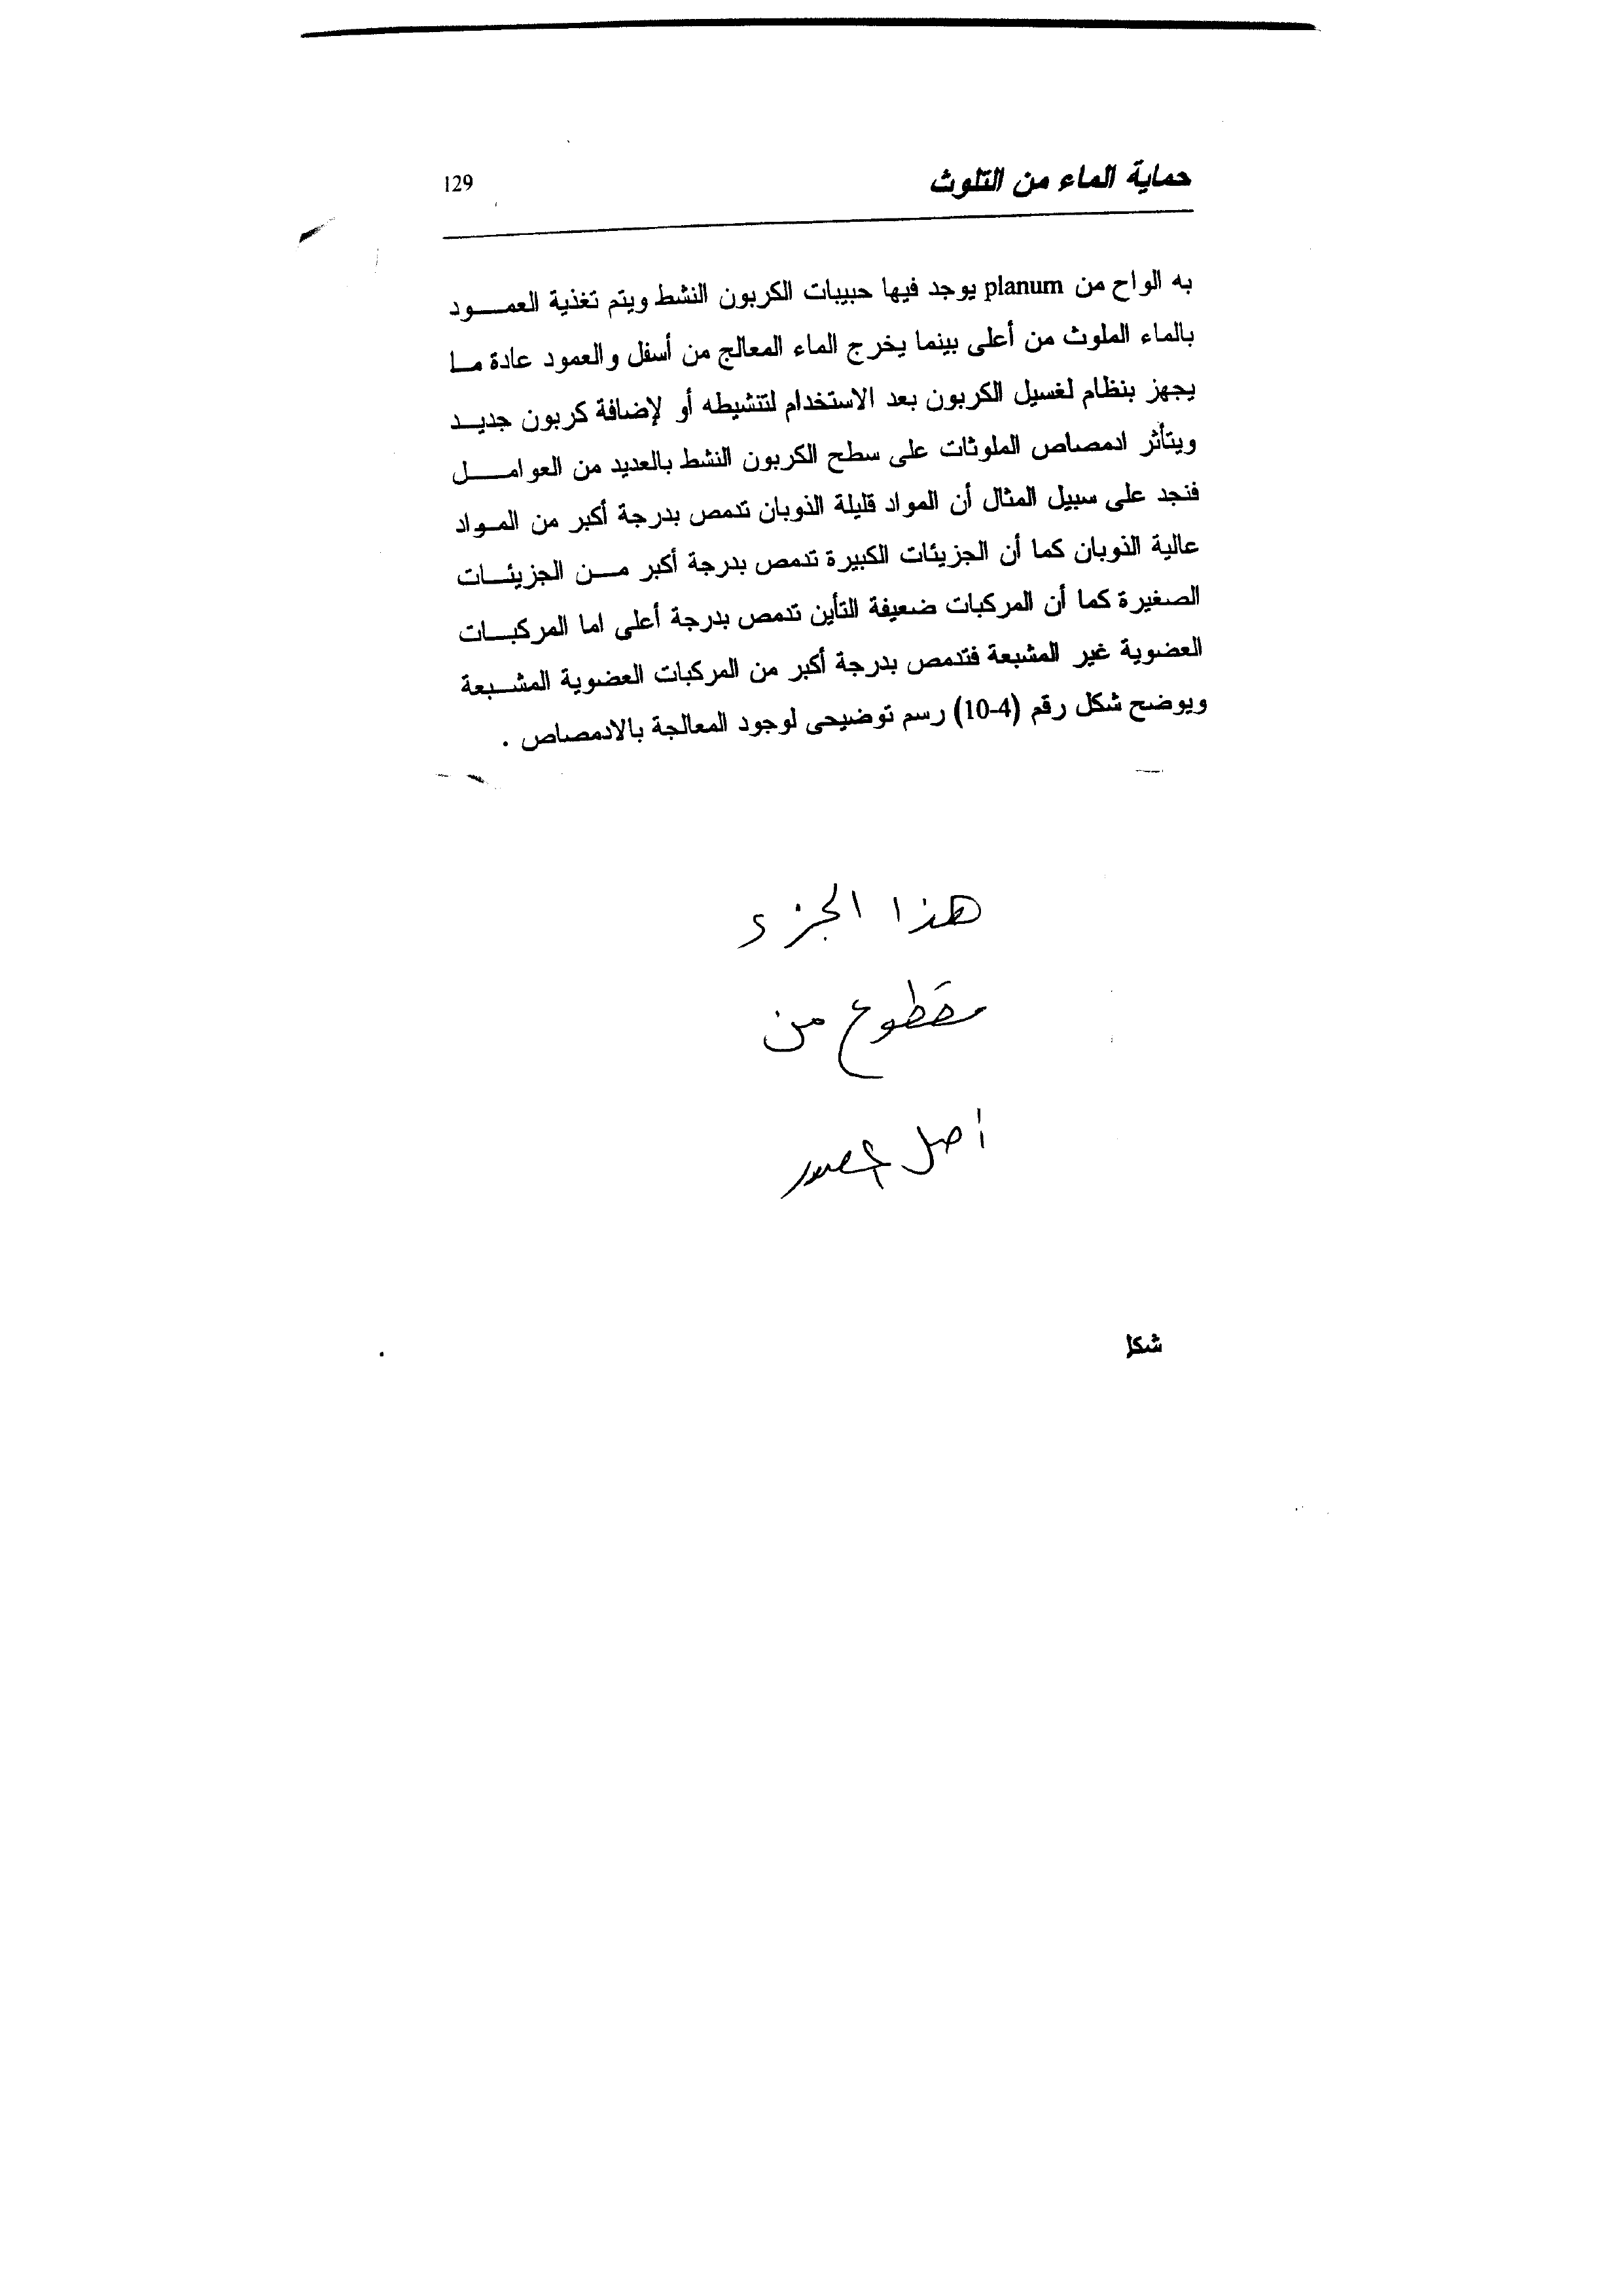 حماية الماء من التلوث 129
به الواح من planum يوجد فيها حبيبات الكربون النشط ويتم تغذية العمـــود
بالماء الملوث من أعلى بينما يخرج الماء المعالج من أسفل والعمود عادة مـا
يجهز بنظام لغسيل الكربون بعد الاستخدام لتنشيطه أو لإضافة كربون جديــد
ويتأثر ادمصاص الملوثات على سطح الكربون النشط بالعديد من العوامــــل
فنجد على سبيل المثال أن المواد قليلة الذوبان تدمص بدرجة أكبر من المـواد
عالية الذوبان كما أن الجزيئات الكبيرة تدمص بدرجة أكبر مــن الجزيئــات
الصغيرة كما أن المركبات ضعيفة التأين تدمص بدرجة أعلى اما المركبــات
العضوية غير المشبعة فتدمص بدرجة أكبر من المركبات العضوية المشــبعة
ويوضح شكل رقم (4-10) رسم توضيحى لوجود المعالجة بالادمصاص .
هذا الجزء
مقطوع من
أصل المصدر
شكل